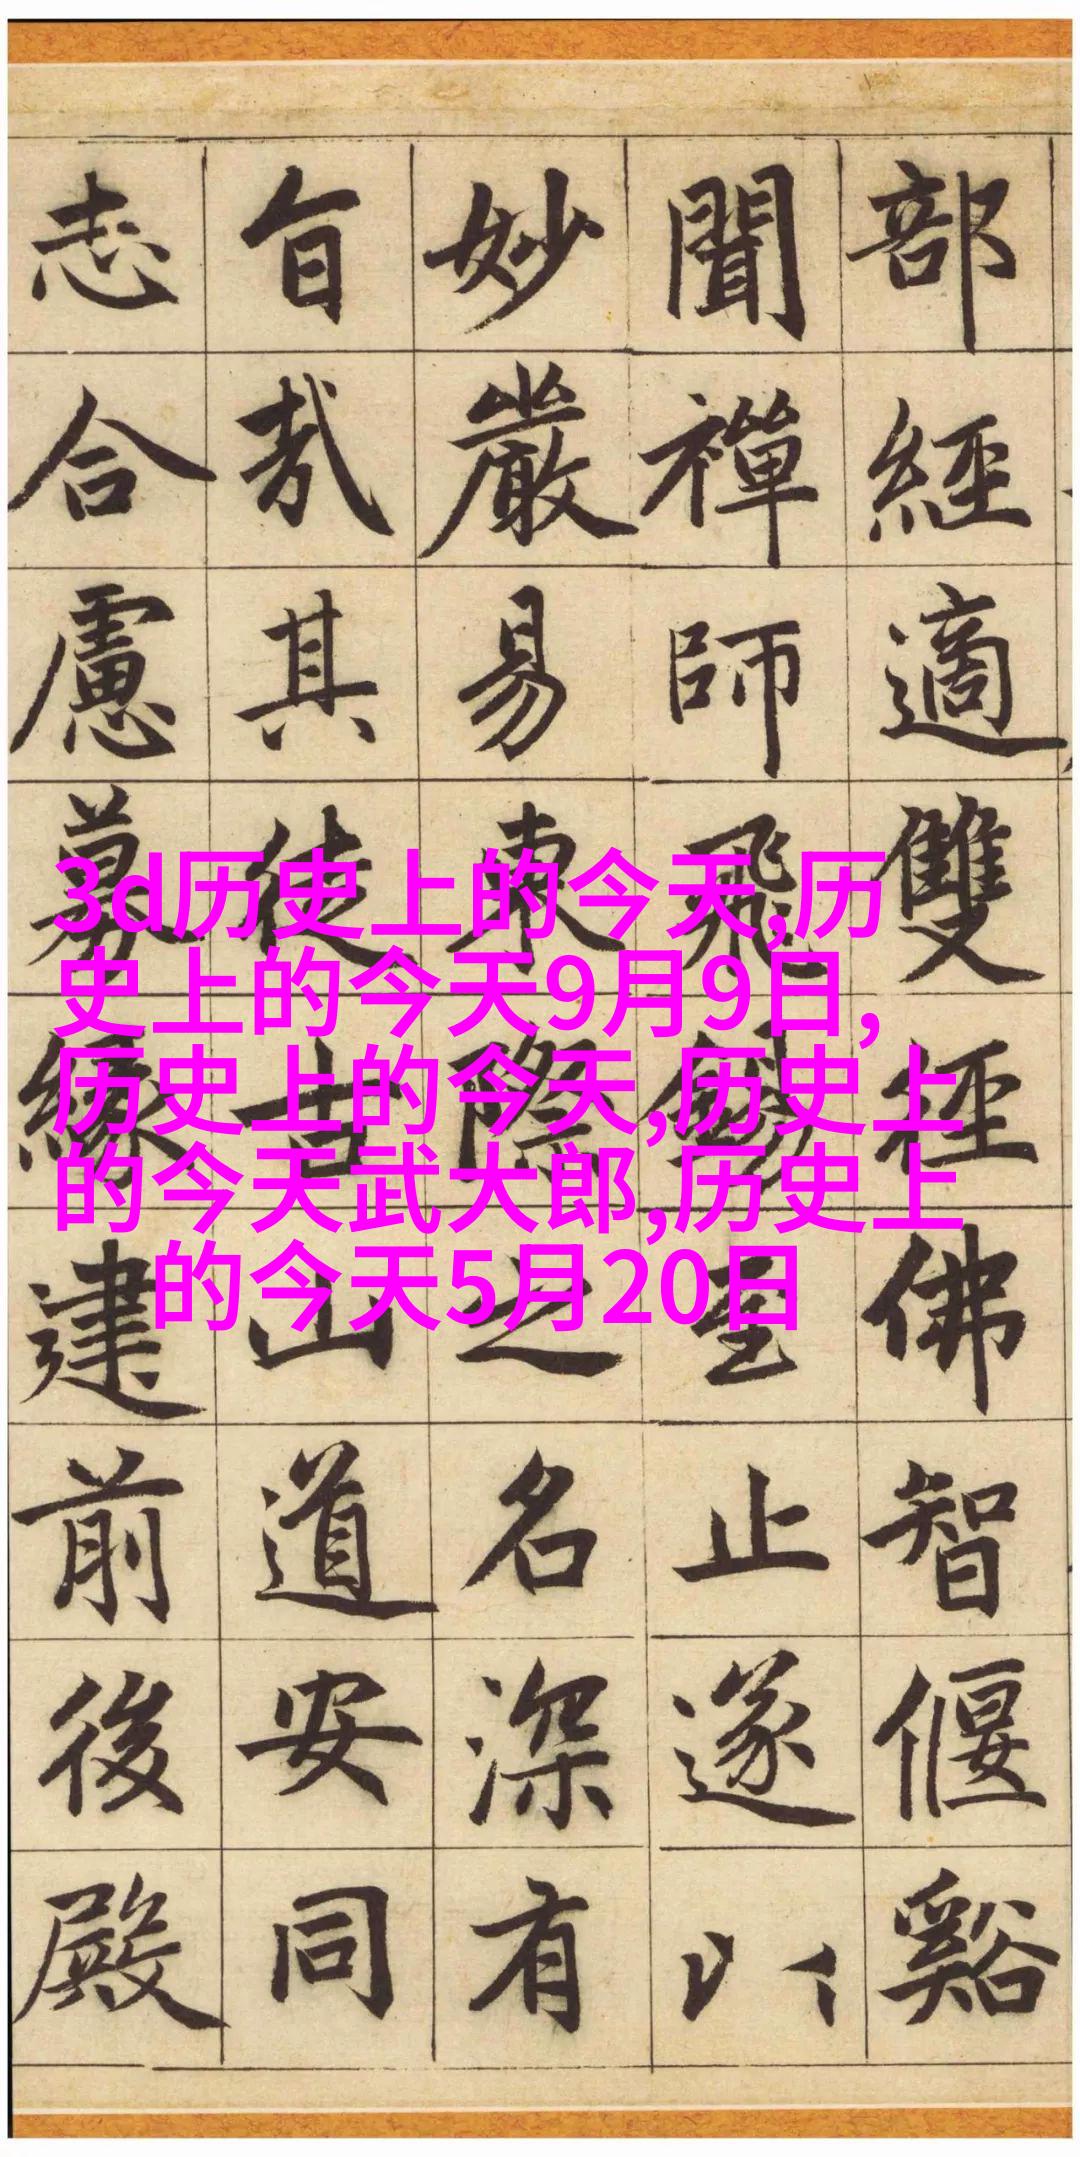 部經適雙徑佛智偃谿
聞禪師飛錫至止遂以
妙嚴易東際之名深有
旨哉其徒古山道安同
志合慮募緣建前後殿
3d历史上的今天,历
史上的今天9月9日,
历史上的今天,历史上
的今天武大郎,历史上
的今天5月20日